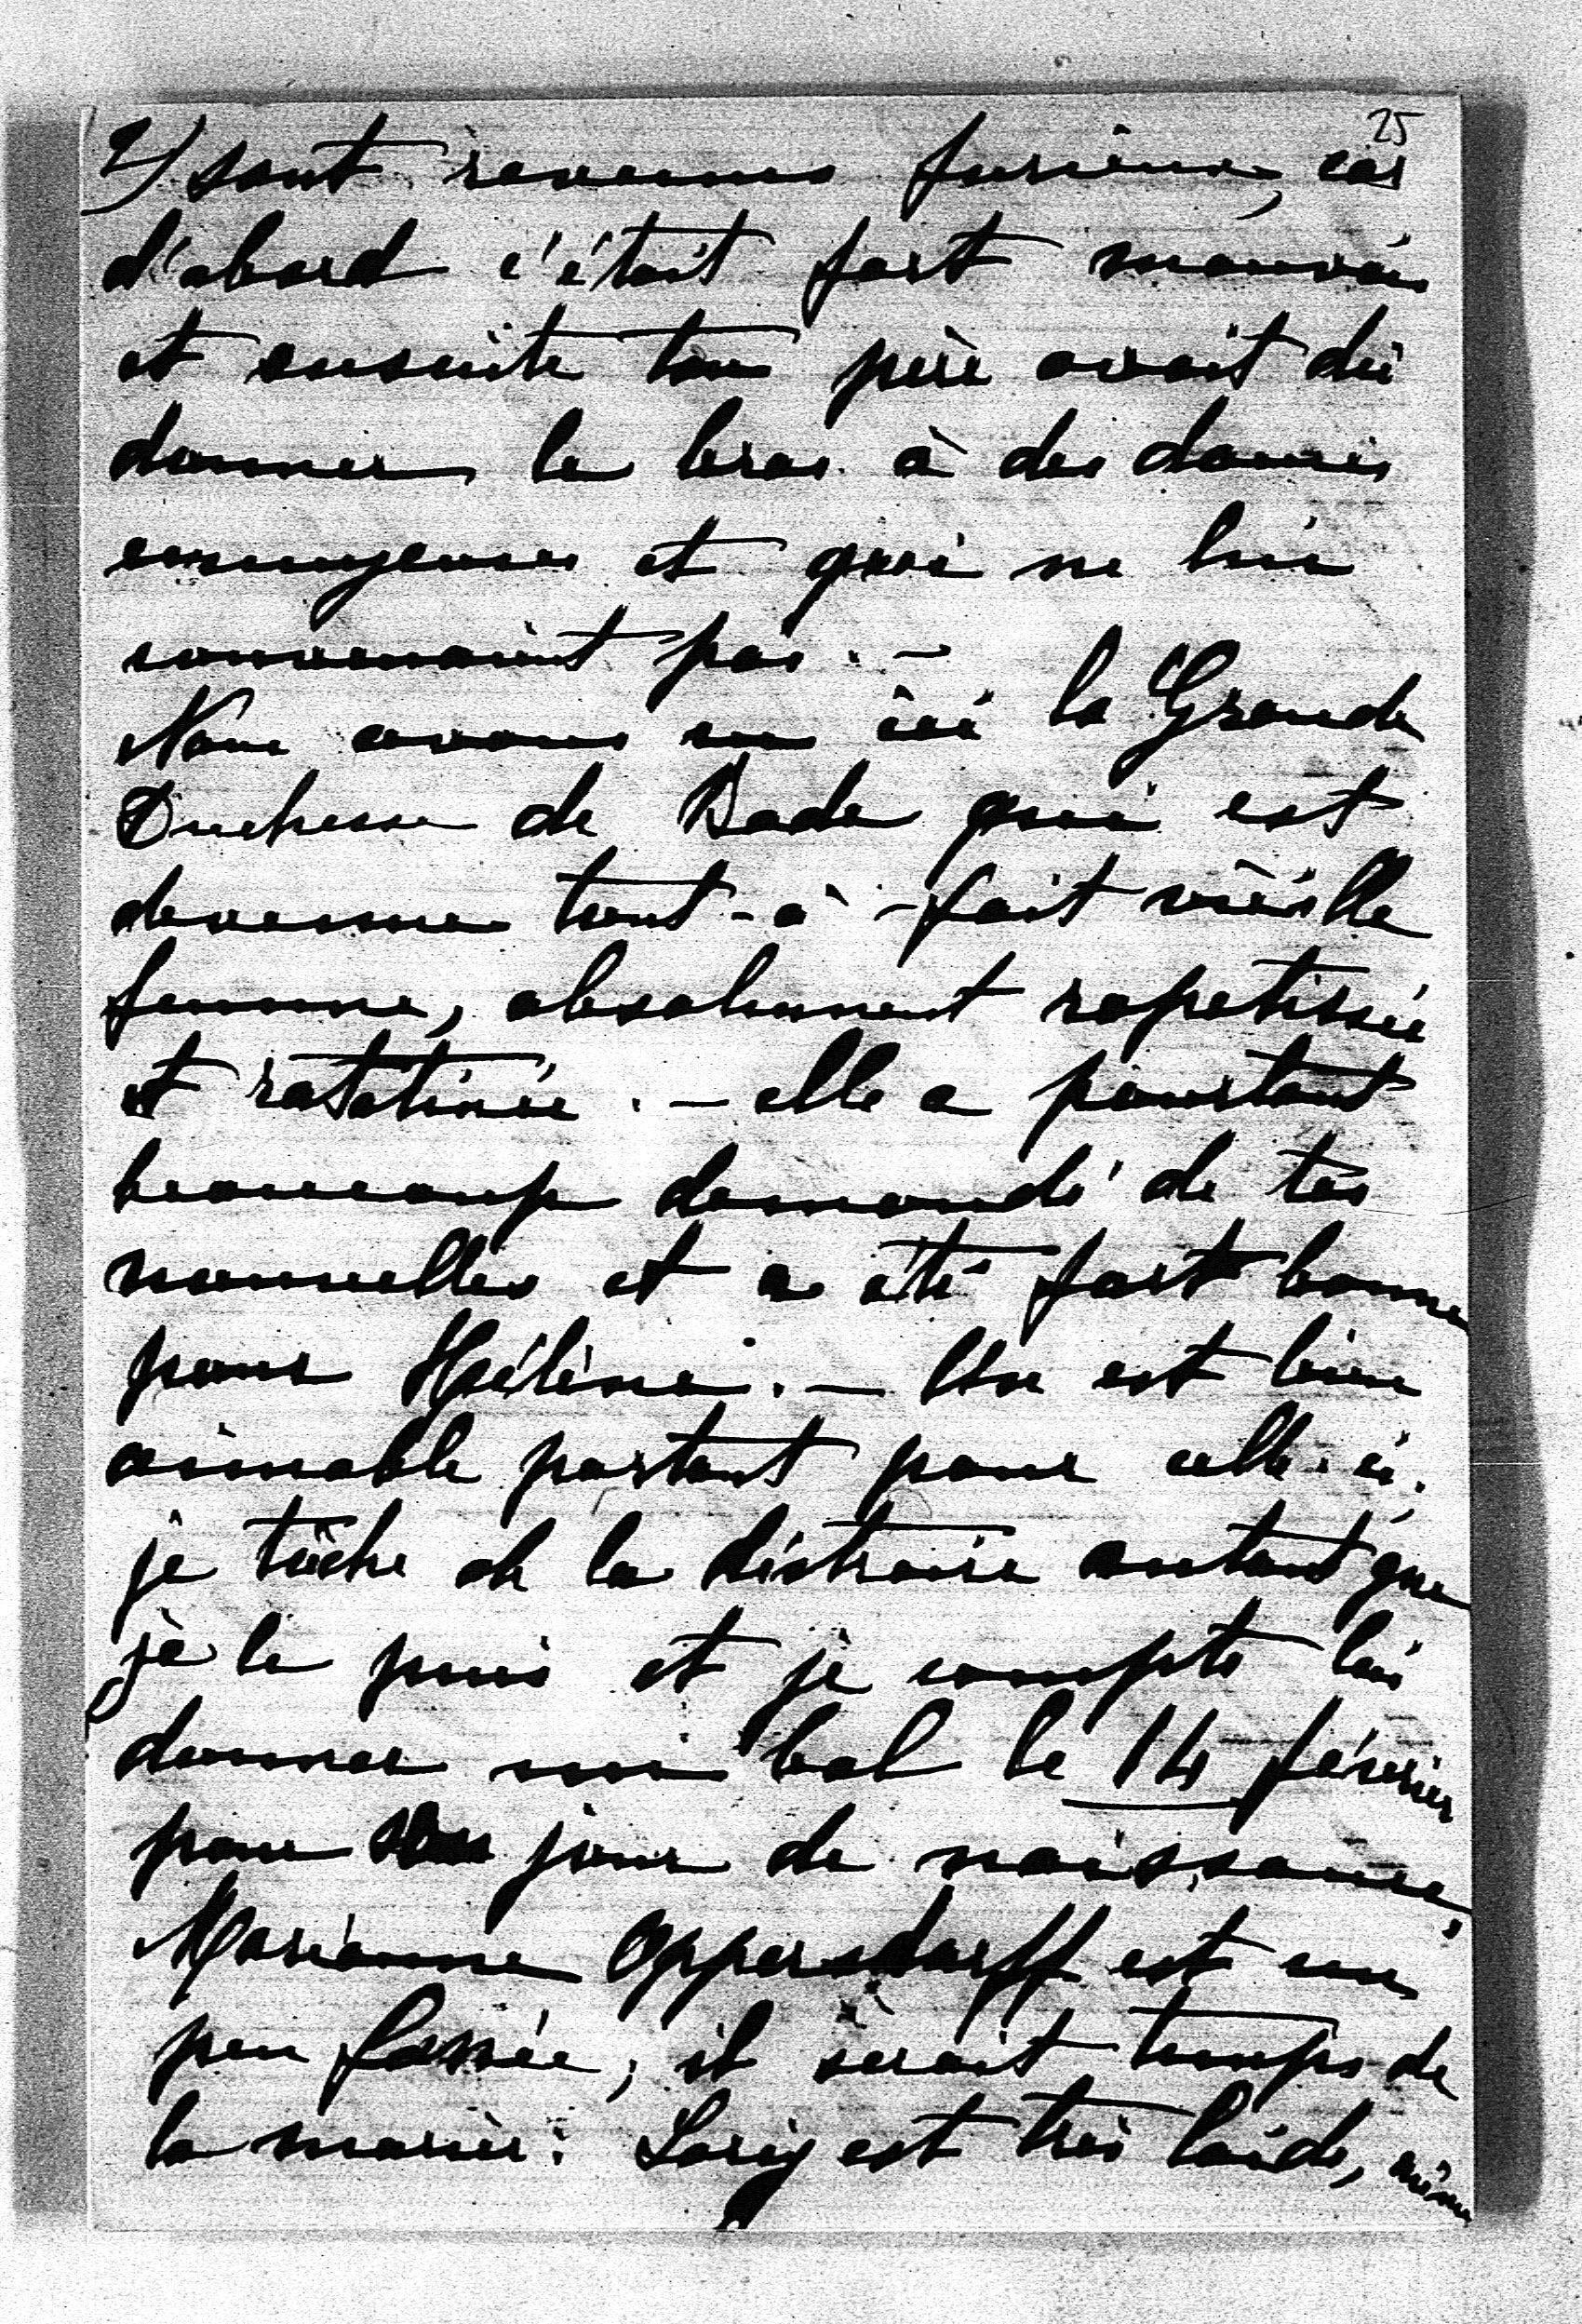 25
2) sont revenus furieux, car
d'abord c'était fort mauvais
et ensuite ton père avait dû
donner le bras à des dames
ennuyeuses et qui ne lui
convenaient pas. —
Nous avons vu ici la Grande
Duchesse de Bade qui est
devenue tout-à-fait vieille
femme, absolument rapetissée
et ratatinée. — elle a pourtant
beaucoup demandé de tes
nouvelles et a été fort bonne
pour Hélène. — On est bien
aimable partout pour celle-ci;
je tâche de la distraire autant que
je le puis et je compte lui
donner un bal le 14 février
pour son jour de naissance,
Marianne Oppersdorff est un
peu fanée, il serait temps de
la marier. Lory est très laide, même